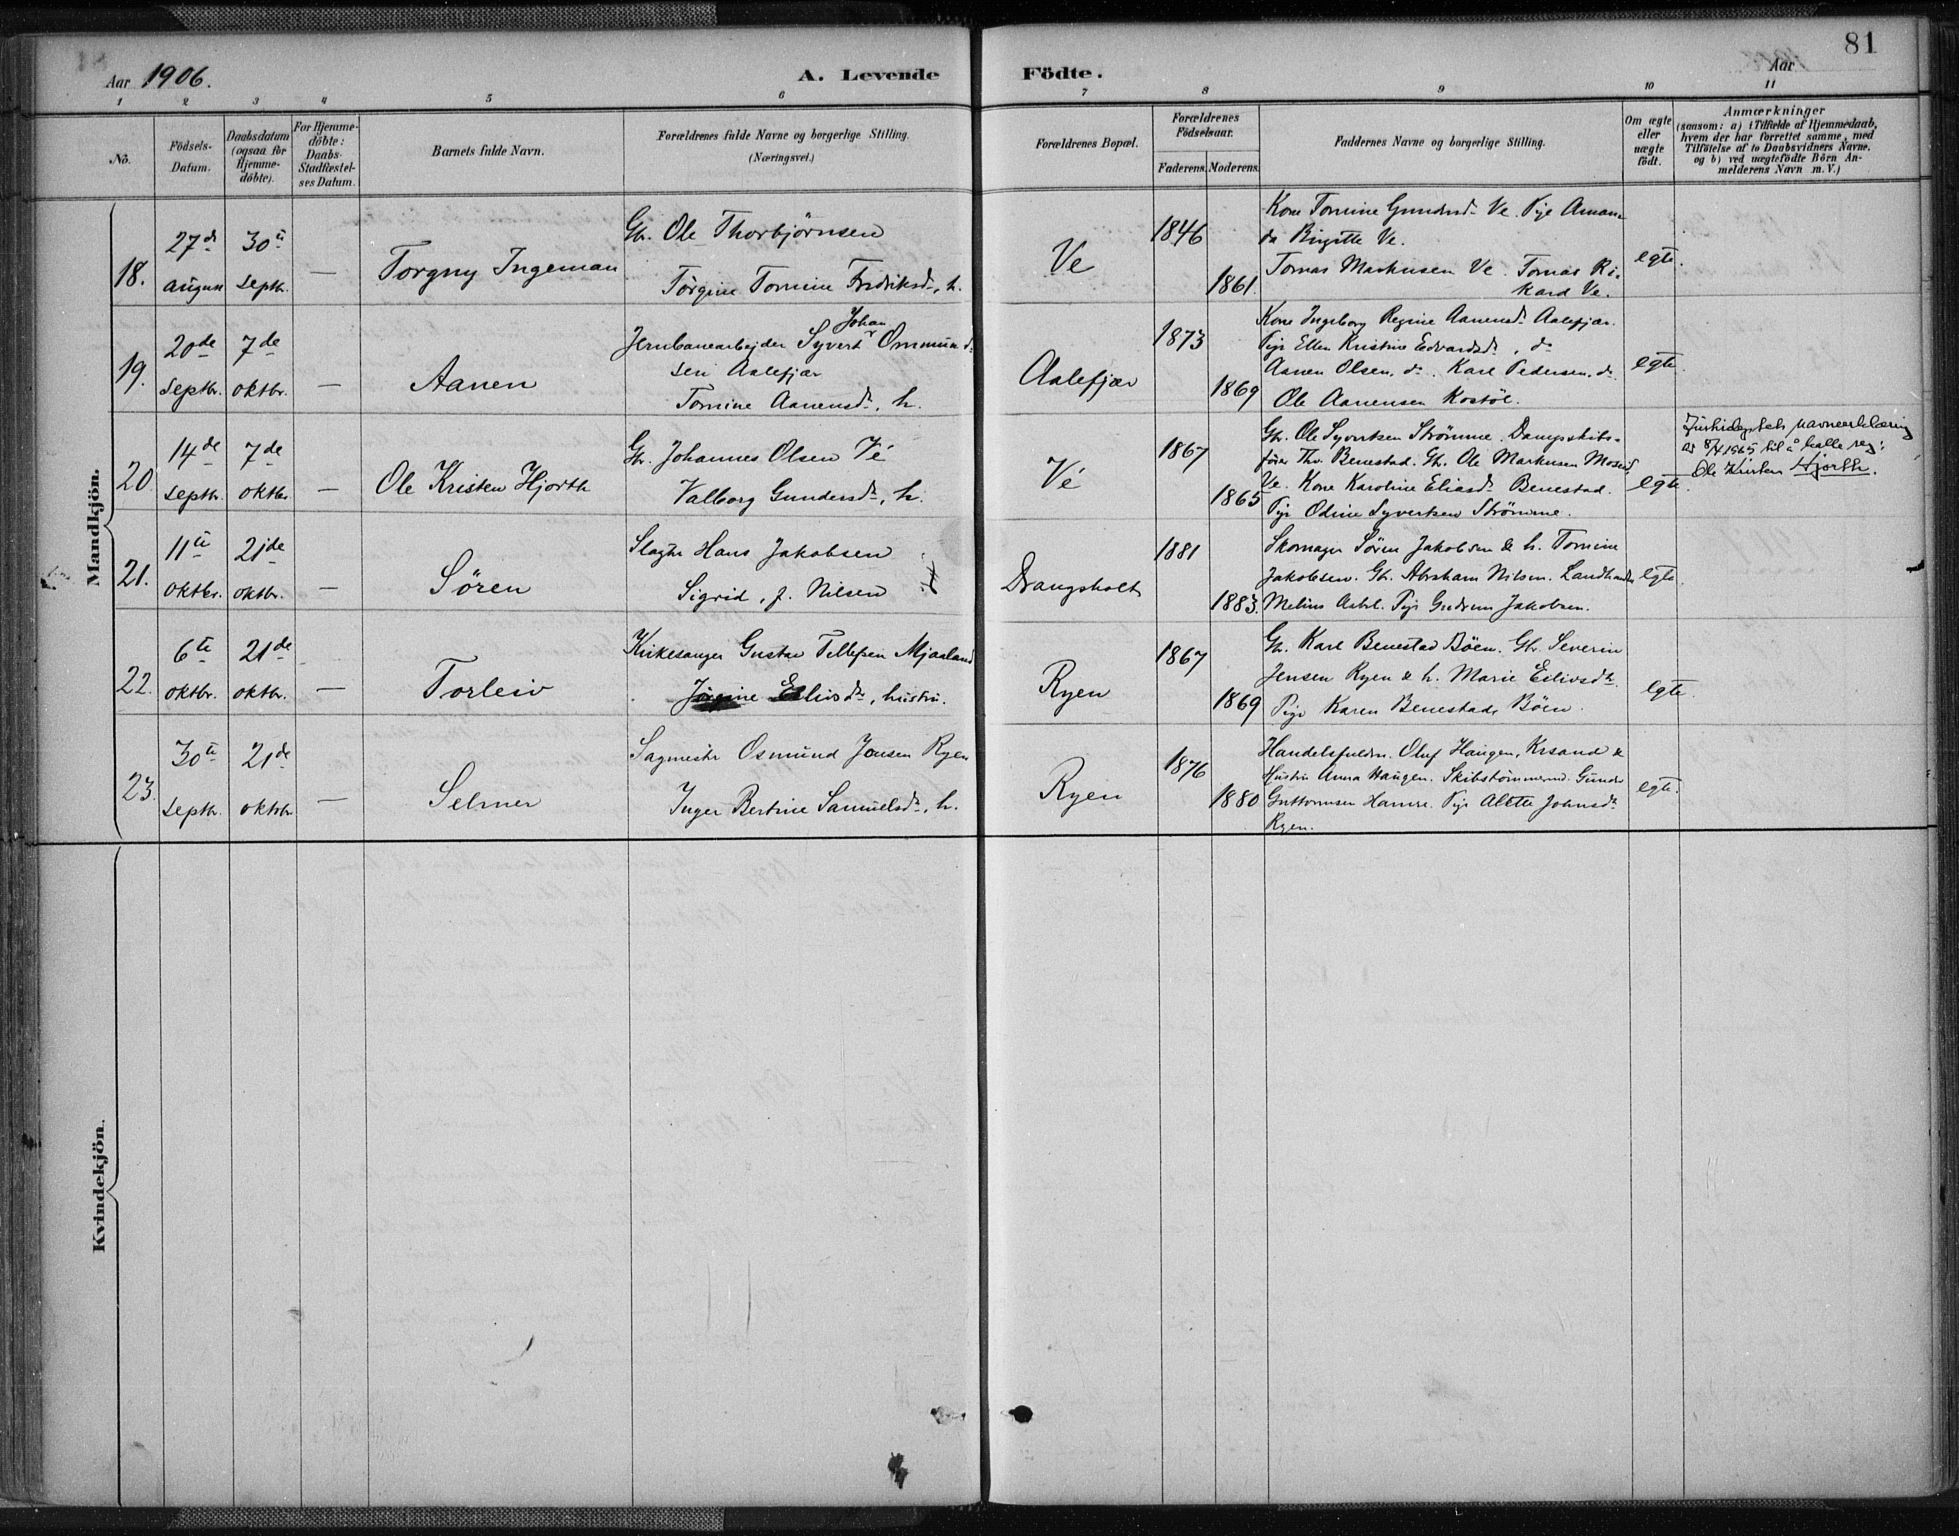 81
Aar 1906.
A. Levende Födte.
Aar
1 2 3 4 5 6 7 8 9 10 11
No.
Födsels-Datum.
Daabsdatum (ogsaa för Hjemme-döbte).
For Hjemme-döbte: Daabs-Stadfæstel-ses Datum.
Barnets fulde Navn.
Forældrenes fulde Navne og borgerlige Stilling.
(Næringsvei.)
Forældrenes Bopæl.
Forældrenes Födselsaar.
Faderens. Moderens.
Faddernes Navne og borgerlige Stilling.
Om ægte eller uægte födt.
Anmærkninger
(saasom: a) i Tilfælde af Hjemmedaab,
hvem der har forrettet samme, med
Tilföielse af to Daabsvidners Navne,
og b) ved uægtefödte Börn An-
melderens Navn m. V.)
Mandkjön.
18. 27de august 30te septbr. — Torgny Ingeman
Gbr. Ole Thorbjörnsen
Törgine Tomine Fredriksdr., h.
Ve
1846
1861.
Kone Tomine Gundersdr. Ve. Pige Aman-
da Birgitte Ve.
Tomas Markusen Ve. Tomas Ri-
kard Ve.
egte.
19. 20de septbr. 7de oktbr. — Aanen
Johan
Jernbanearbejder Syvert Ommund-
sen Aalefjær
Tomine Aanensdr., h.
Aalefjær
1873
1869
Kone Ingeborg Regine Aanensdr. Aalefjær.
Pige Ellen Kristine Edvardsdr., do
Aanen Olsen, do. Karl Pedersen, do.
Ole Aanensen Kostöl.
egte.
20. 14de septbr. 7de oktbr. — Ole Kristen Hjorth
Gbr. Johannes Olsen Vé
Valborg Gundersdr., h.
Vé
1867
1865
Gbr. Ole Syvertsen Strömme. Dampskibs-
förer Thv. Benestad. Gbr. Ole Markusen Moseid
Ve. Kone Karoline Eliasdr. Benestad.
Pige Odine Syvertsen Strömme.
egte.
Justisdeptets navneerklæring
av 8/4 1965 til å kalle seg:
Ole Kristen Hjorth.
21. 11te oktbr. 21de oktbr. — Sören
Slagter Hans Jakobsen
Sigrid, f. Nilsen
Drangsholt
1881
1883.
Skomager Sören Jakobsen & h. Tomine
Jakobsen. Gbr. Abraham Nilsen. Landhandler
Melius Pige Gudrun Jakobsen.
egte.
22. 6te oktbr. 21de oktbr. — Torleiv
Kirkesanger Gustav Tellefsen Mjaaland
Jörgine Eilivsdr., hustru.
Ryen
1867
1869
Gbr. Karl Benestad Böen. Gbr. Severin
Jensen Ryen & h. Marie Eilivsdr.
Pige Karen Benestad, Böen.
egte.
23. 30te septbr. 21de oktobr. — Selmer
Sagmester Osmund Jensen Ryen
Inger Bertine Samuelsdr., h.
Ryen
1876
1880
Handelsfuldm. Oluf Haugen, Krsand &
Hustru Anna Haugen. Skibstömmermd. Gunder
Guttormsen Hamre. Pige Alette Johnsdr.
Ryen.
egte.
Kvindekjön.